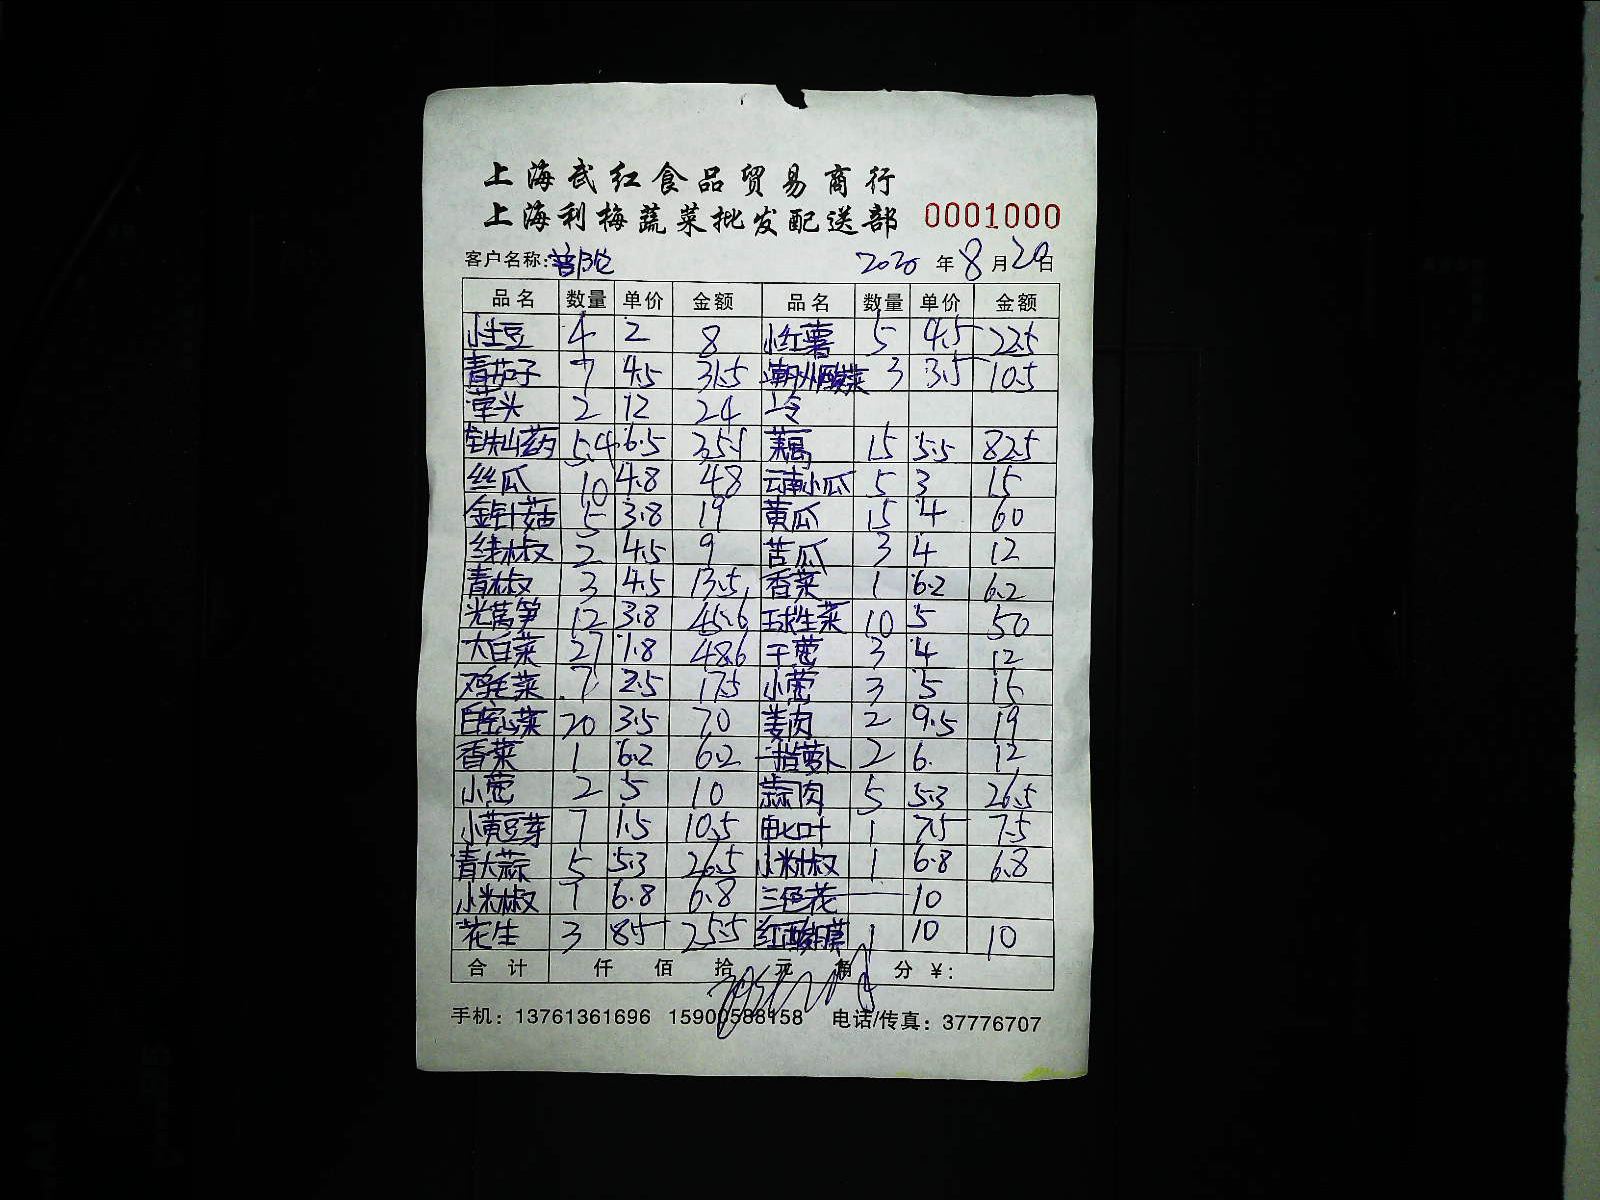 上海武红食品贸易商行
上海利梅蔬菜批发配送部 0001000
客户名称:普陀 2020 年 8 月 20 日
品名 数量 单价 金额 品名 数量 单价 金额
小土豆 4 2 8 小红薯 5 4.5 22.5
青茄子 7 4.5 31.5 潮州酸菜 3 3.5 10.5
草头 2 12 24 冷
铁山药 5.4 6.5 35.1 藕 15 5.5 82.5
丝瓜 10 4.8 48 云南小瓜 5 3 15
金针菇 5 3.8 19 黄瓜 15 4 60
线椒 2 4.5 9 苦瓜 3 4 12
青椒 3 4.5 13.5 香菜 1 6.2 6.2
光莴笋 12 3.8 45.6 球生菜 10 5 50
大白菜 27 1.8 48.6 干葱 3 4 12
鸡毛菜 7 2.5 17.5 小葱 3 5 15
白空心菜 20 3.5 70 姜肉 2 9.5 19
香菜 1 6.2 6.2 萝卜 2 6 12
小葱 2 5 10 蒜肉 5 5.3 26.5
小黄豆芽 7 1.5 10.5 叶 1 7.5 7.5
青大蒜 5 5.3 26.5 小米椒 1 6.8 6.8
小米椒 1 6.8 6.8 三色花 10
花生 3 8.5 25.5 红酸膜 1 10 10
合计 仟 佰 拾 元 角 分 ¥:
手机: 13761361696 15900588158 电话/传真: 37776707